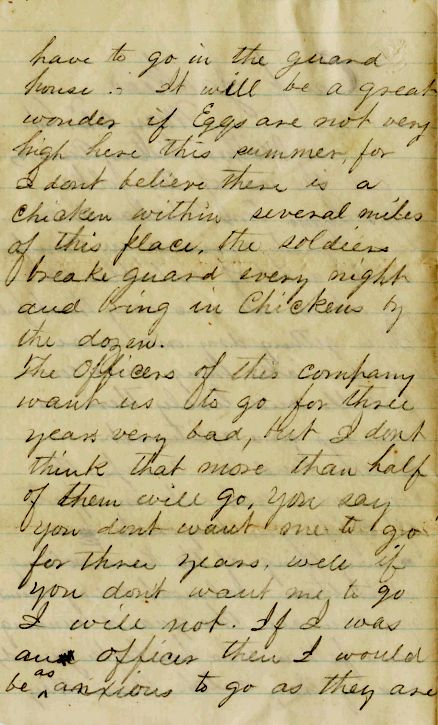 have to go in the guard
house. It will be a great
wonder if Eggs are not very
high here this summer, for
I dont believe there is a
chicken within several miles
of this place, the soldiers
breake guard every night
and bring in Chickens by
the dozen.
The Officers of this company
want us to go for three
years very bad, but I dont
think that more than half
of them will go, You say
you dont want me to go
for three years, well if
you don't want me to go
I will not. If I was
an officer then I would
be as anxious to go as they are